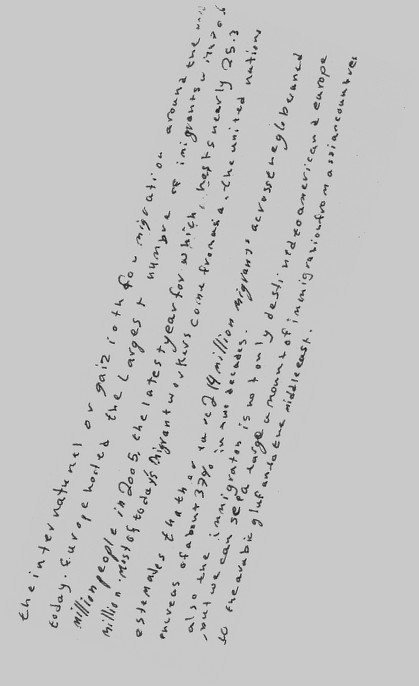 the internatunel or gaiz ioth for migration around the
today. Europe hosted the Largest numbre of imigrants with 70.6
million people in 2005, the latest year for which, hosts nearly 25.3
million. Most of today's migrant workers come from asia. the united nations
estemades thather are 214 million migrants across the globe and
encreas of about 37% in two decades.
also the immigraton is not only destined to american d europe
, but we can see a large amount of immigration from assian countres
to the arabic gluf and to the middle east.